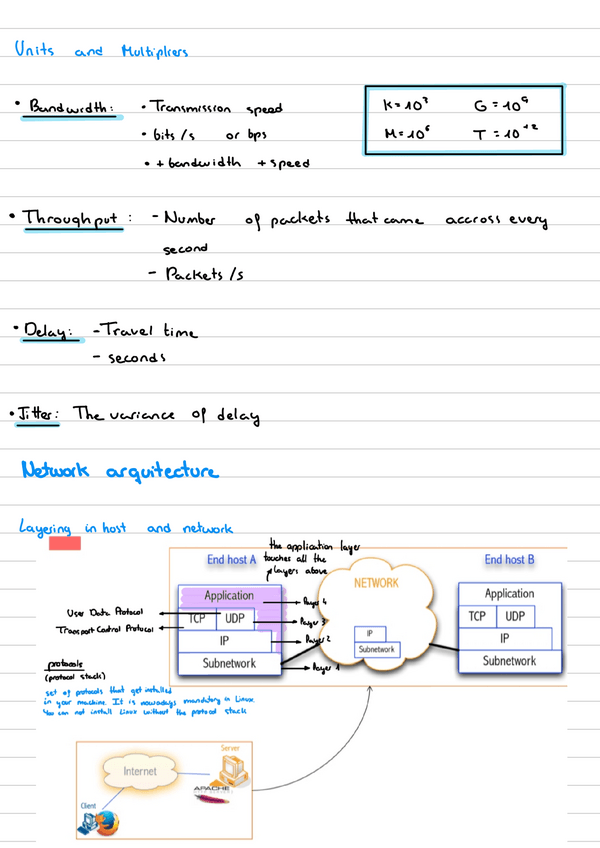 Units and Multipliers
• Bandwidth: • Transmission speed
• bits/s or bps
• + bandwidth + speed
K=10³ G=10⁹
M=10⁶ T=10⁺¹²
• Throughput: - Number of packets that came accross every
second
- Packets/s
• Delay: - Travel time
- seconds
• Jitter: The variance of delay
Network arquitecture
Layering in host and network
the application layer
touches all the
players above
End host A
Application
TCP UDP
IP
Subnetwork
Player 4
Player 3
Player 2
Player 1
User Data Protocol
Transport Control Protocol
NETWORK
IP
Subnetwork
End host B
Application
TCP UDP
IP
Subnetwork
protocols
(protocol stack)
set of protocols that get installed
in your machine. It is nowadays mandatory in Linux
You can not install Linux without the protocol stack
Internet
Server
APACHE
Client